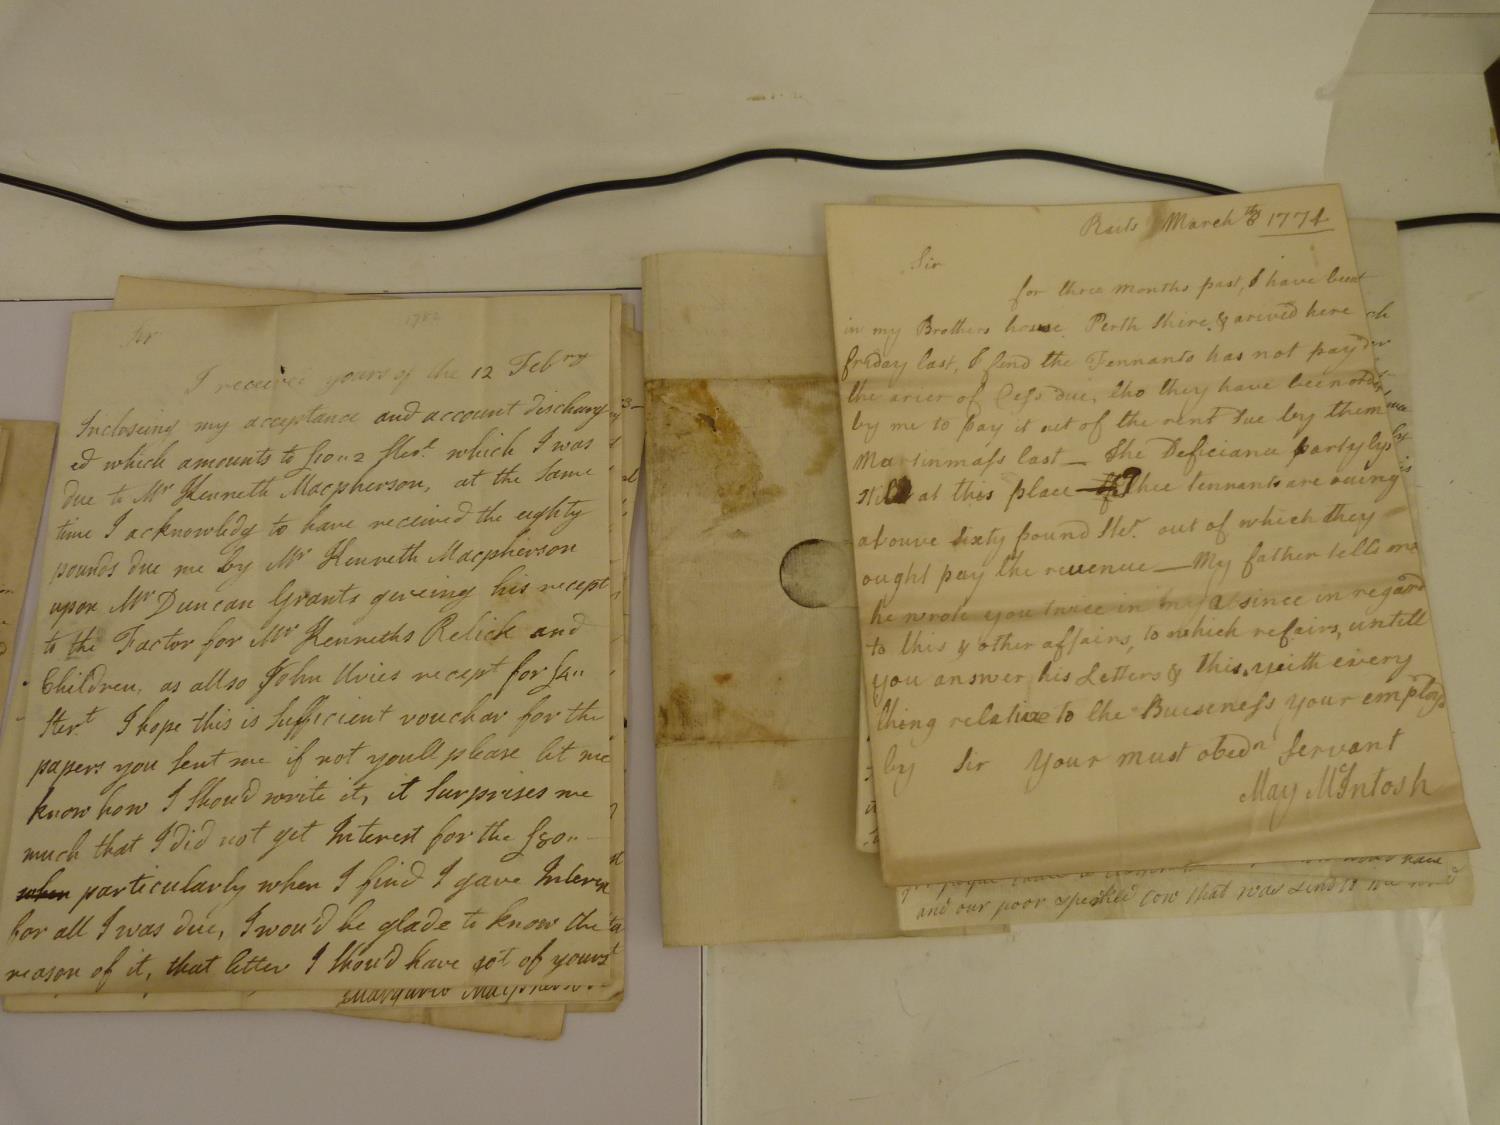 1782
Sir
I receivee yours of the 12 Febry
Incloseing my acceptance and account discharg
ed which amounts to Stert. which I was
due to Mr Kenneth Macpherson, at the Same
time I acknowlidg to have received the eighty
pounds due me by Mr Kenneth Macpherson
upon Mr Duncan Grants giveing his recept
to the Factor for Mr Kenneths Relick and
Children, as allso John Uries recept for £4"
Stert I hope this is Sufficient vouchar for the
papers you Sent me if not youll please let me
know how I Should write it, it Surprises me
much that I did not get Interest for the £80"
when particularly when I find I gave Interes
for all I was due, I wou'd be glade to know the
reason of it, that letter I Shou'd have got of yours
Margaret Macpherson
Raits March 8th 1774
Sir
for three months past, I have been
in my Brothers house Perth Shire, & arived here
friday last, I find the Tennants has not payd
the arier of Cess due, tho they have been ordr
by me to pay it out of the rent due by them
Martinmass last — The Deficiance partly lys
still at this place — Thee tennants are oweing
abouve sixty pound Ster. out of which they
ought pay the revenue — My father tells me
he wrote you twice in since in regard
to this & other affairs, to which refairs, untill
you answer his Letters & this, with every
thing relative to the Buiseness your employd
by Sir Your must obedn Servant
May McIntosh
and our poor speckled cow that was